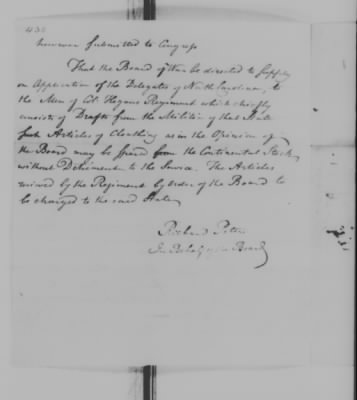 430
however submitted to Congress
That the Board of War be directed to supply
on Application of the Delegates of North Carolina, to
the Men of Col. Hogans Regiment which chiefly
consists of Drafts from the Militia of that State
such Articles of Cloathing as in the Opinion of
the Board may be spared from the Continental Stock
without Detriment to the Service. The Articles
received by the Regiment by order of the Board to
be charged to the said State
Richard Peters
In Behalf of the Board